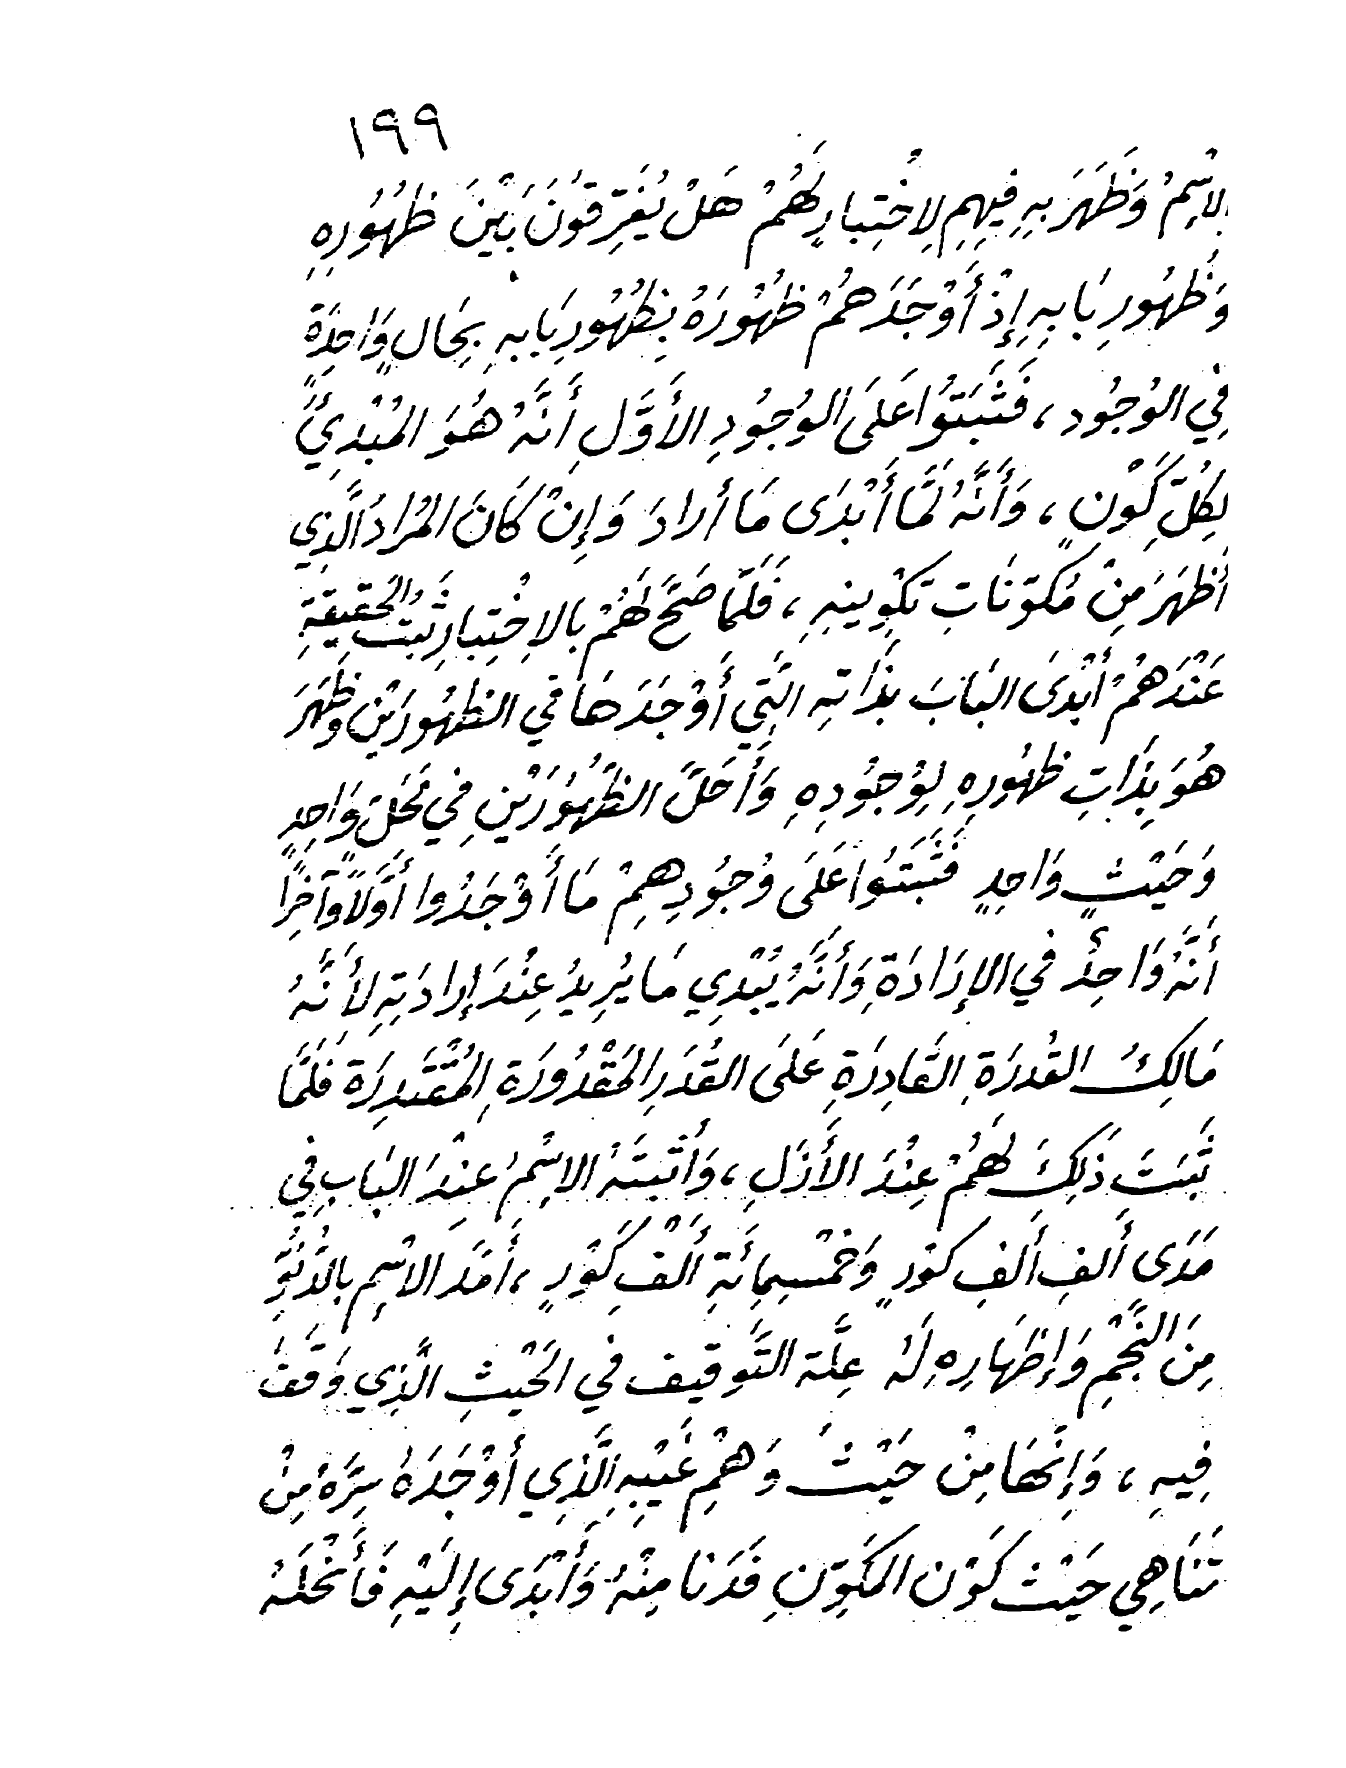 ١٩٩
بِالاسْمِ وَظَهَرَ بِهِ فِيهِمِ لِاخْتِبارِ لَهُمْ هَلْ يُفَرِّقُونَ بَيْنَ ظُهُورِهِ
وَظُهُورِ بَابِهِ إِذْ أَوْجَدَهُمْ ظُهُورَهُ بِظُهُورِ بَابِهِ بِحَالٍ وَاحِدَةٍ
فِي الوُجُود ، فَثَبَتُوا عَلَى الوُجُودِ الأَوَّلِ أَنَّهُ هُوَ المُبْدِئُ
لِكُلِّ كَوْنٍ ، وَأَنَّهُ لَمَّا أَبْدَى مَا أَرادَ وَإِنْ كَانَ المُرادُ الَّذِي
أَظْهَرَ مِنْ مُكَوّنَاتِ تَكْوِينِهِ ، فَلَمَّا صَحَّ لَهُمْ بِالاِخْتِبارِ ثَبْتُ الحَقِيقَةِ
عَنْدَهُمْ أَبْدَى البَابَ بِذَاتِهِ الَّتِي أَوْجَدَهَا فِي الظهُورَيْنِ وَظَهَرَ
هُوَ بِذَاتِ ظهُورِهِ لِوُجُودِهِ وَأَحَلَّ الظُّهُورَيْنِ فِي مَحَلٍّ وَاحِدٍ
وَحَيْثٍ وَاحِدٍ فَثَبَتُوا عَلَى وُجُودِهِمْ مَا أَوْجَدُوا أَوَّلاً وَآخِرًا
أَنَّهُ وَاحِدٌ فِي الإِرَادَةِ وَأَنَّهُ يُبْدِي مَا يُرِيدُ عِنْدَ إِرادَتِهِ لِأَنَّهُ
مَالِكُ القُدرَةِ القَادِرَةِ عَلَى القُدَرِ المَقْدُورَةِ المُقْتَدِرَةِ فَلَمَّا
ثَبَتَ ذَلِكَ لَهُمْ عِنْدَ الأَزَلِ ، وَأَثْبَتَهُ الاِسْمُ عِنْدَ البَابِ فِي
مَدَى أَلفِ أَلفِ كورٍ وَخَمْسِمِائَةِ أَلْفِ كَوْرٍ ، أَمَدَّ الاسْمِ بِالدُّنُوِّ
مِنَ النَّجْمِ وَإِظهَارِهِ لَهُ عِلَّة التَّوقِيف فِي الحَيْثِ الَّذِي وَقَفَ
فِيهِ ، وَإِنَّهَا مِنْ حَيْثُ وَهْمِ غَيْبِهِ الَّذِي أَوْجَدَهُ سِرَّهُ مِنْ
تَنَاهِي حَيْث كَوْن المكَوِّنِ فَدَنا مِنْهُ وَأَبْدَى إِلَيْهِ فَأَنْحَلَهُ